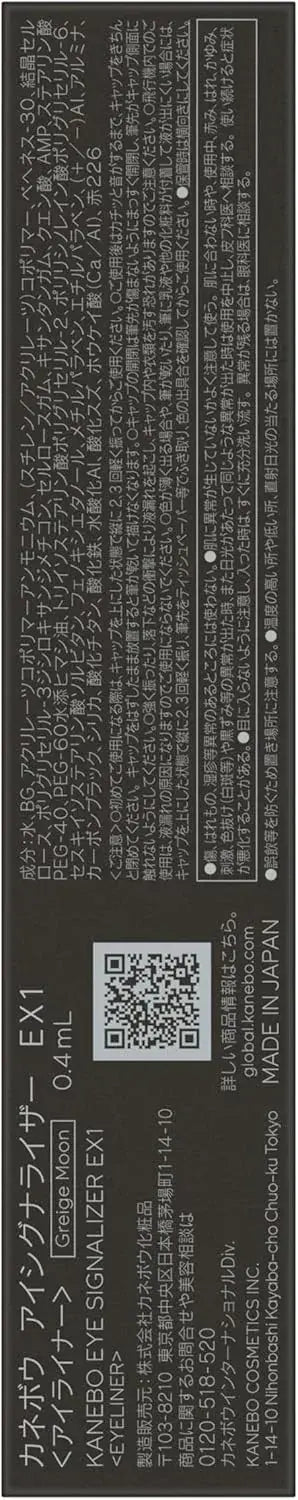 カネボウ　アイシグナライザー　EX1
＜アイライナー＞
Greige Moon
0.4 mL
KANEBO EYE SIGNALIZER EX1
<EYELINER>
製造販売元：株式会社カネボウ化粧品
〒103-8210 東京都中央区日本橋茅場町1-14-10
商品に関するお問合せや美容相談は
0120-518-520
カネボウインターナショナルDiv.
KANEBO COSMETICS INC.
1-14-10 Nihonbashi Kayaba-cho Chuo-ku Tokyo
詳しい商品情報はこちら。
global.kanebo.com
MADE IN JAPAN
成分：水、BG、アクリレーツコポリマーアンモニウム、(スチレン／アクリレーツ)コポリマー、ベヘネス-30、結晶セル
ロース、ポリグリセリル-3ジシロキサンジメチコン、セルロースガム、キサンタンガム、クエン酸、AMP、ステアリン酸
PEG-40、PEG-60水添ヒマシ油、トリイソステアリン酸ポリグリセリル-2、ポリリシノレイン酸ポリグリセリル-6、
セスキイソステアリン酸ソルビタン、フェノキシエタノール、メチルパラベン、エチルパラベン、(＋／－)Al、アルミナ、
カーボンブラック、シリカ、酸化チタン、酸化鉄、水酸化Al、酸化スズ、ホウケイ酸(Ca／Al)、赤226
＜ご注意＞○初めてご使用になる際は、キャップを上にした状態で縦に2、3回軽く振ってからご使用ください。○ご使用後はカチッと音がするまで、キャップをきちん
と閉めてください。キャップをはずしたまま放置すると筆が乾いて描けなくなります。○キャップの開閉は筆先が傷まないようにまっすぐ開閉し、筆先がキャップ側面に
触れないようにしてください。○強く振ったり、落下などの衝撃により液漏れを起こし、キャップ内や衣類を汚す恐れがありますのでご注意ください。○飛行機内でのご
使用は、液漏れの原因になりますのでご使用にならないでください。○色が薄く出る場合や、筆が乾いたり、筆に乳液や他の化粧料が付着して液が出にくい場合には、
キャップを上にした状態で縦に2、3回軽く振り、筆先をティッシュペーパー等でふき取り、色の出具合を確認してからご使用ください。●保管時は横向きにしてください。
●傷、はれもの、湿疹等異常のあるところには使わない。●肌に異常が生じていないかよく注意して使う。肌に合わない時や、使用中、赤み、はれ、かゆみ、
刺激、色抜け(白斑等)や黒ずみ等の異常が出た時、また日光があたって同じような異常が出た時は使用を中止し、皮フ科医へ相談する。使い続けると症状
が悪化することがある。●目に入らないように注意し、入った時は、すぐに充分洗い流す。異常が残る場合は、眼科医に相談する。
●誤飲等を防ぐため置き場所に注意する。●温度の高い所や低い所、直射日光の当たる場所には置かない。